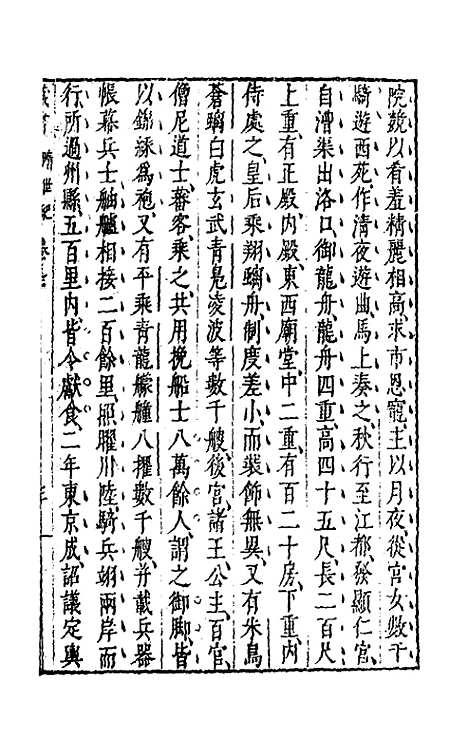 院競以肴羞精麗相高求市恩寵主以月夜從宮女數千
騎遊西苑作清夜遊曲馬上奏之秋行至江都發顯仁宮
自漕渠出洛口御龍舟龍舟四重高四十五尺長二百尺
上重有正殿內殿東西廟堂中二重有百二十房下重內
侍處之皇后乘翔螭舟制度差小而裝飾無異又有朱鳥
蒼螭白虎玄武青鳧淩波等數千艘後宮諸王公主百官
僧尼道士蕃客乘之共用挽船士八萬餘人謂之御脚皆
以錦綵為袍又有平乘青龍艨艟八櫂數千艘并載兵器
帳幕兵士舳艫相接二百餘里照曜川陸騎兵翊兩岸而
行所過州縣五百里內皆令獻食二年東京成詔議定輿
藏書 世紀